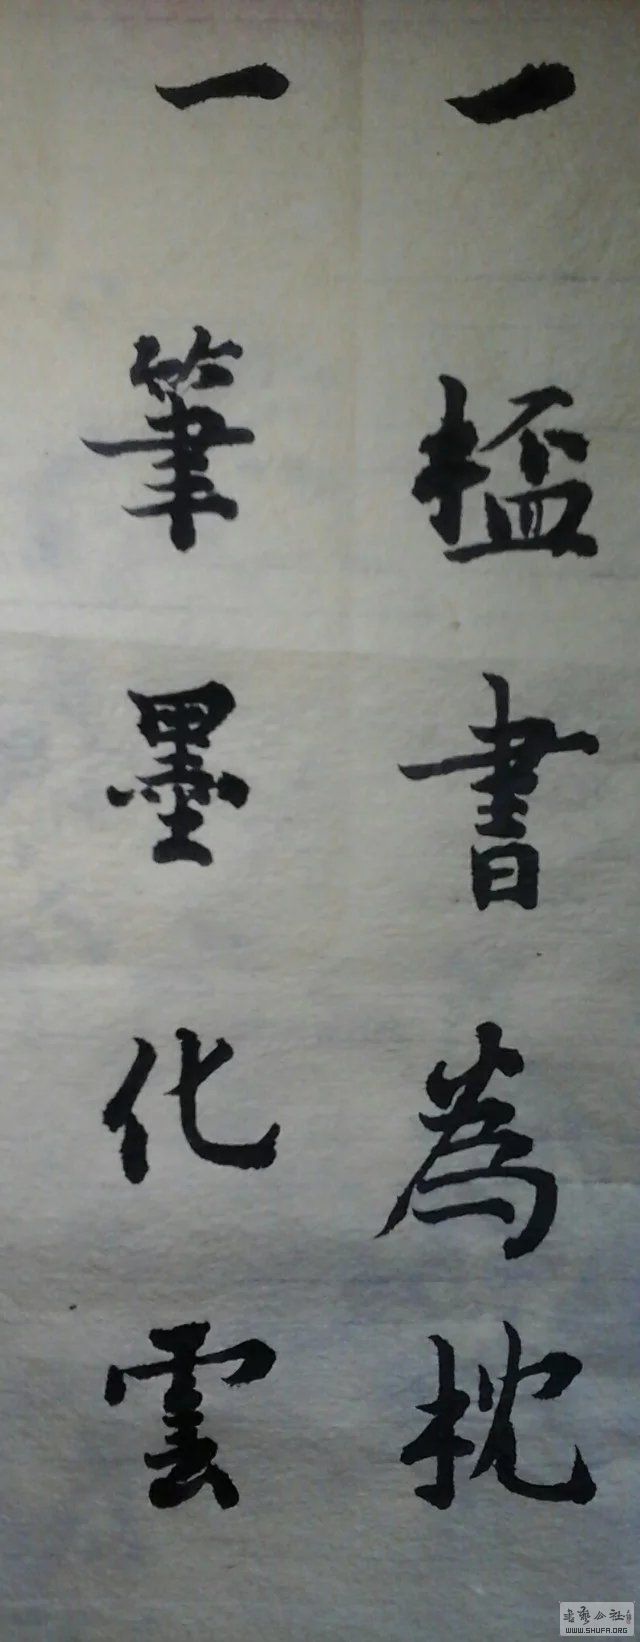 一楹書為枕
一筆墨化雲
書藝公社
WWW.SHUFA.ORG